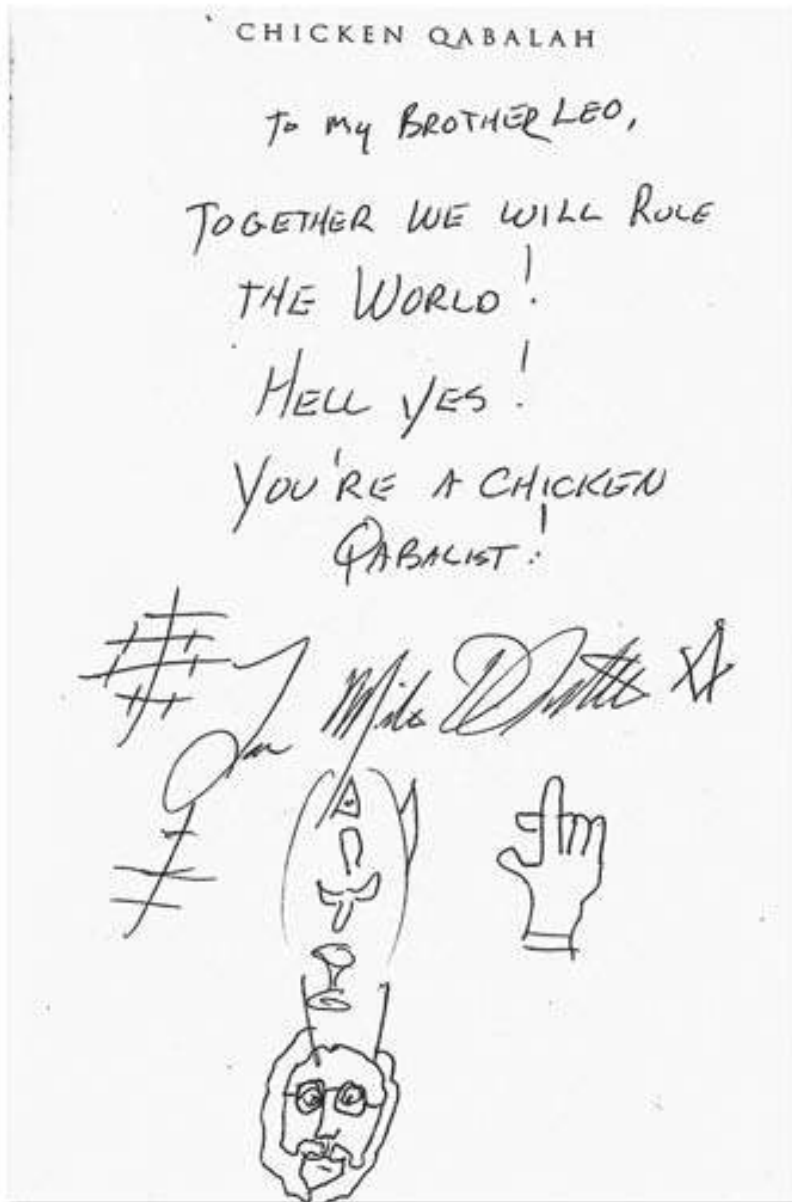 CHICKEN QABALAH
To my BROTHER LEO,
TOGETHER WE WILL RULE
THE WORLD!
HELL YES!
YOU'RE A CHICKEN
QABALIST!
Lon Milo DuQuette